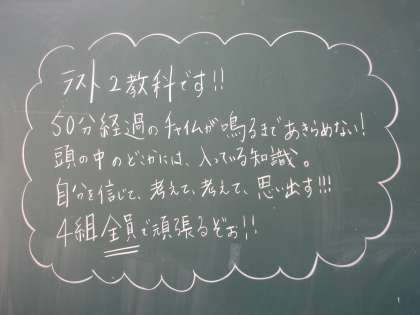 テスト2教科です!!
50分経過のチャイムが鳴るまであきらめない!
頭の中のどこかには、入っている知識。
自分を信じて、考えて、考えて、思い出す!!!
4組全員で頑張るぞぉ!!